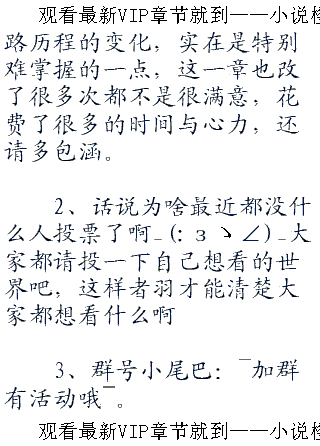 观看最新VIP章节就到——小说
路历程的变化，实在是特别
难掌握的一点，这一章也改
了很多次都不是很满意，花
费了很多的时间与心力，还
请多包涵。
2、话说为啥最近都没什
么人投票了啊_(:з ヽ∠)_大
家都请投一下自己想看的世
界吧，这样者羽才能清楚大
家都想看什么啊
3、群号小尾巴：￣加群
有活动哦￣。
观看最新VIP章节就到——小说